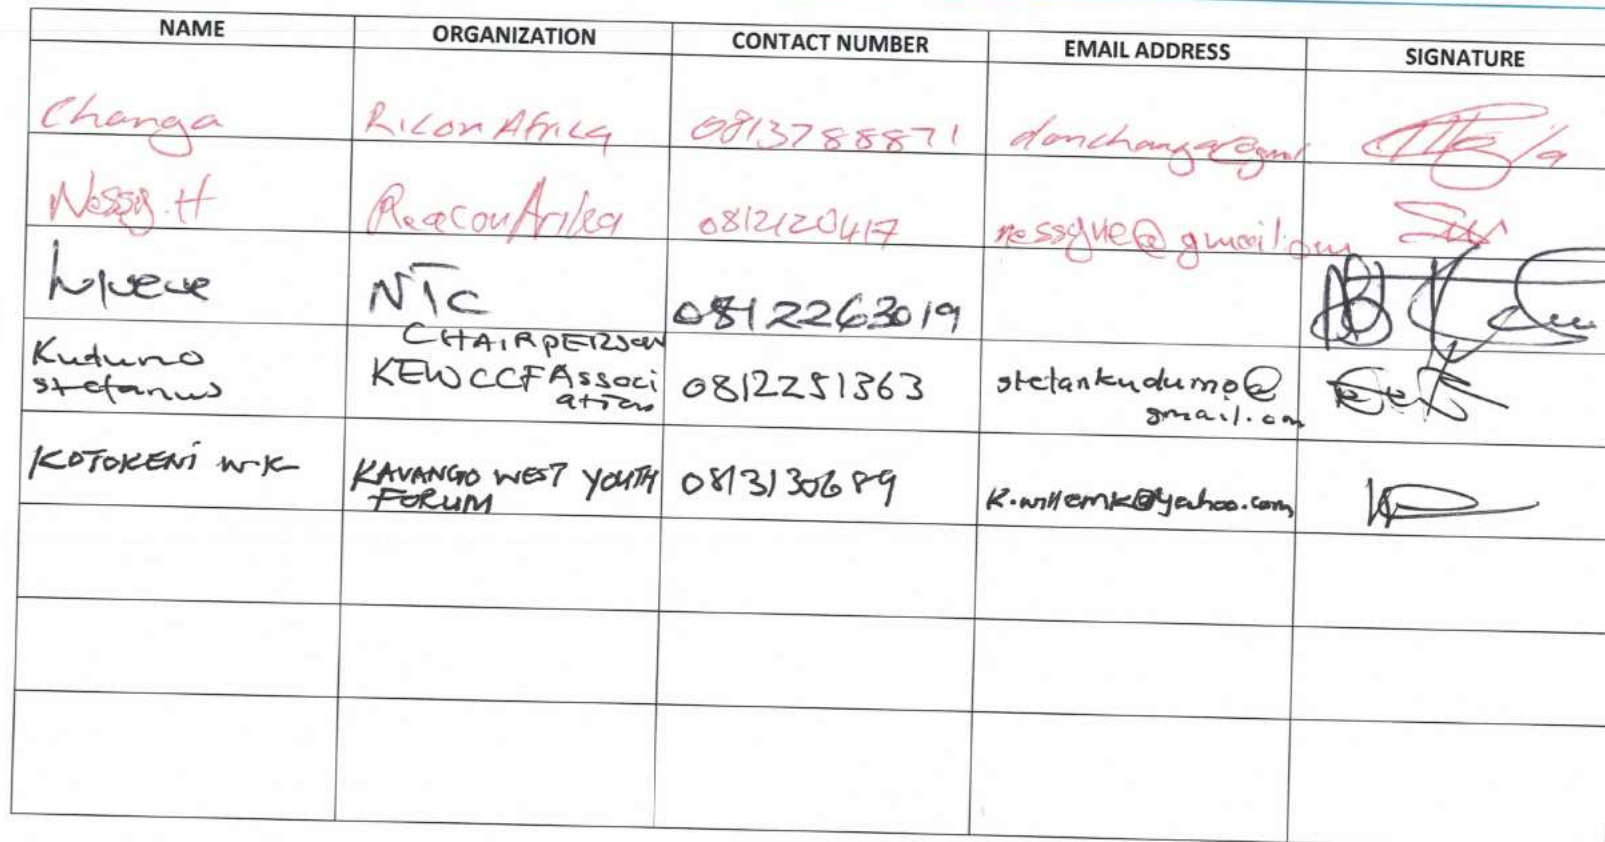 NAME ORGANIZATION CONTACT NUMBER EMAIL ADDRESS SIGNATURE
Changa Recon Africa 0813788871 donchanga@gml
Nessy.H Reacon Arica 0812120417 nessyhe@gmail.om
NTC 0812263019
Kudumo CHAIRPERSON
stefanus KEWCCF Associ 0812251363 stetankudumo@
ation gmail.om
KOTOKENI W.K KAVANGO WEST YOUTH 0813130689 K.willemk@yahoo.com
FORUM